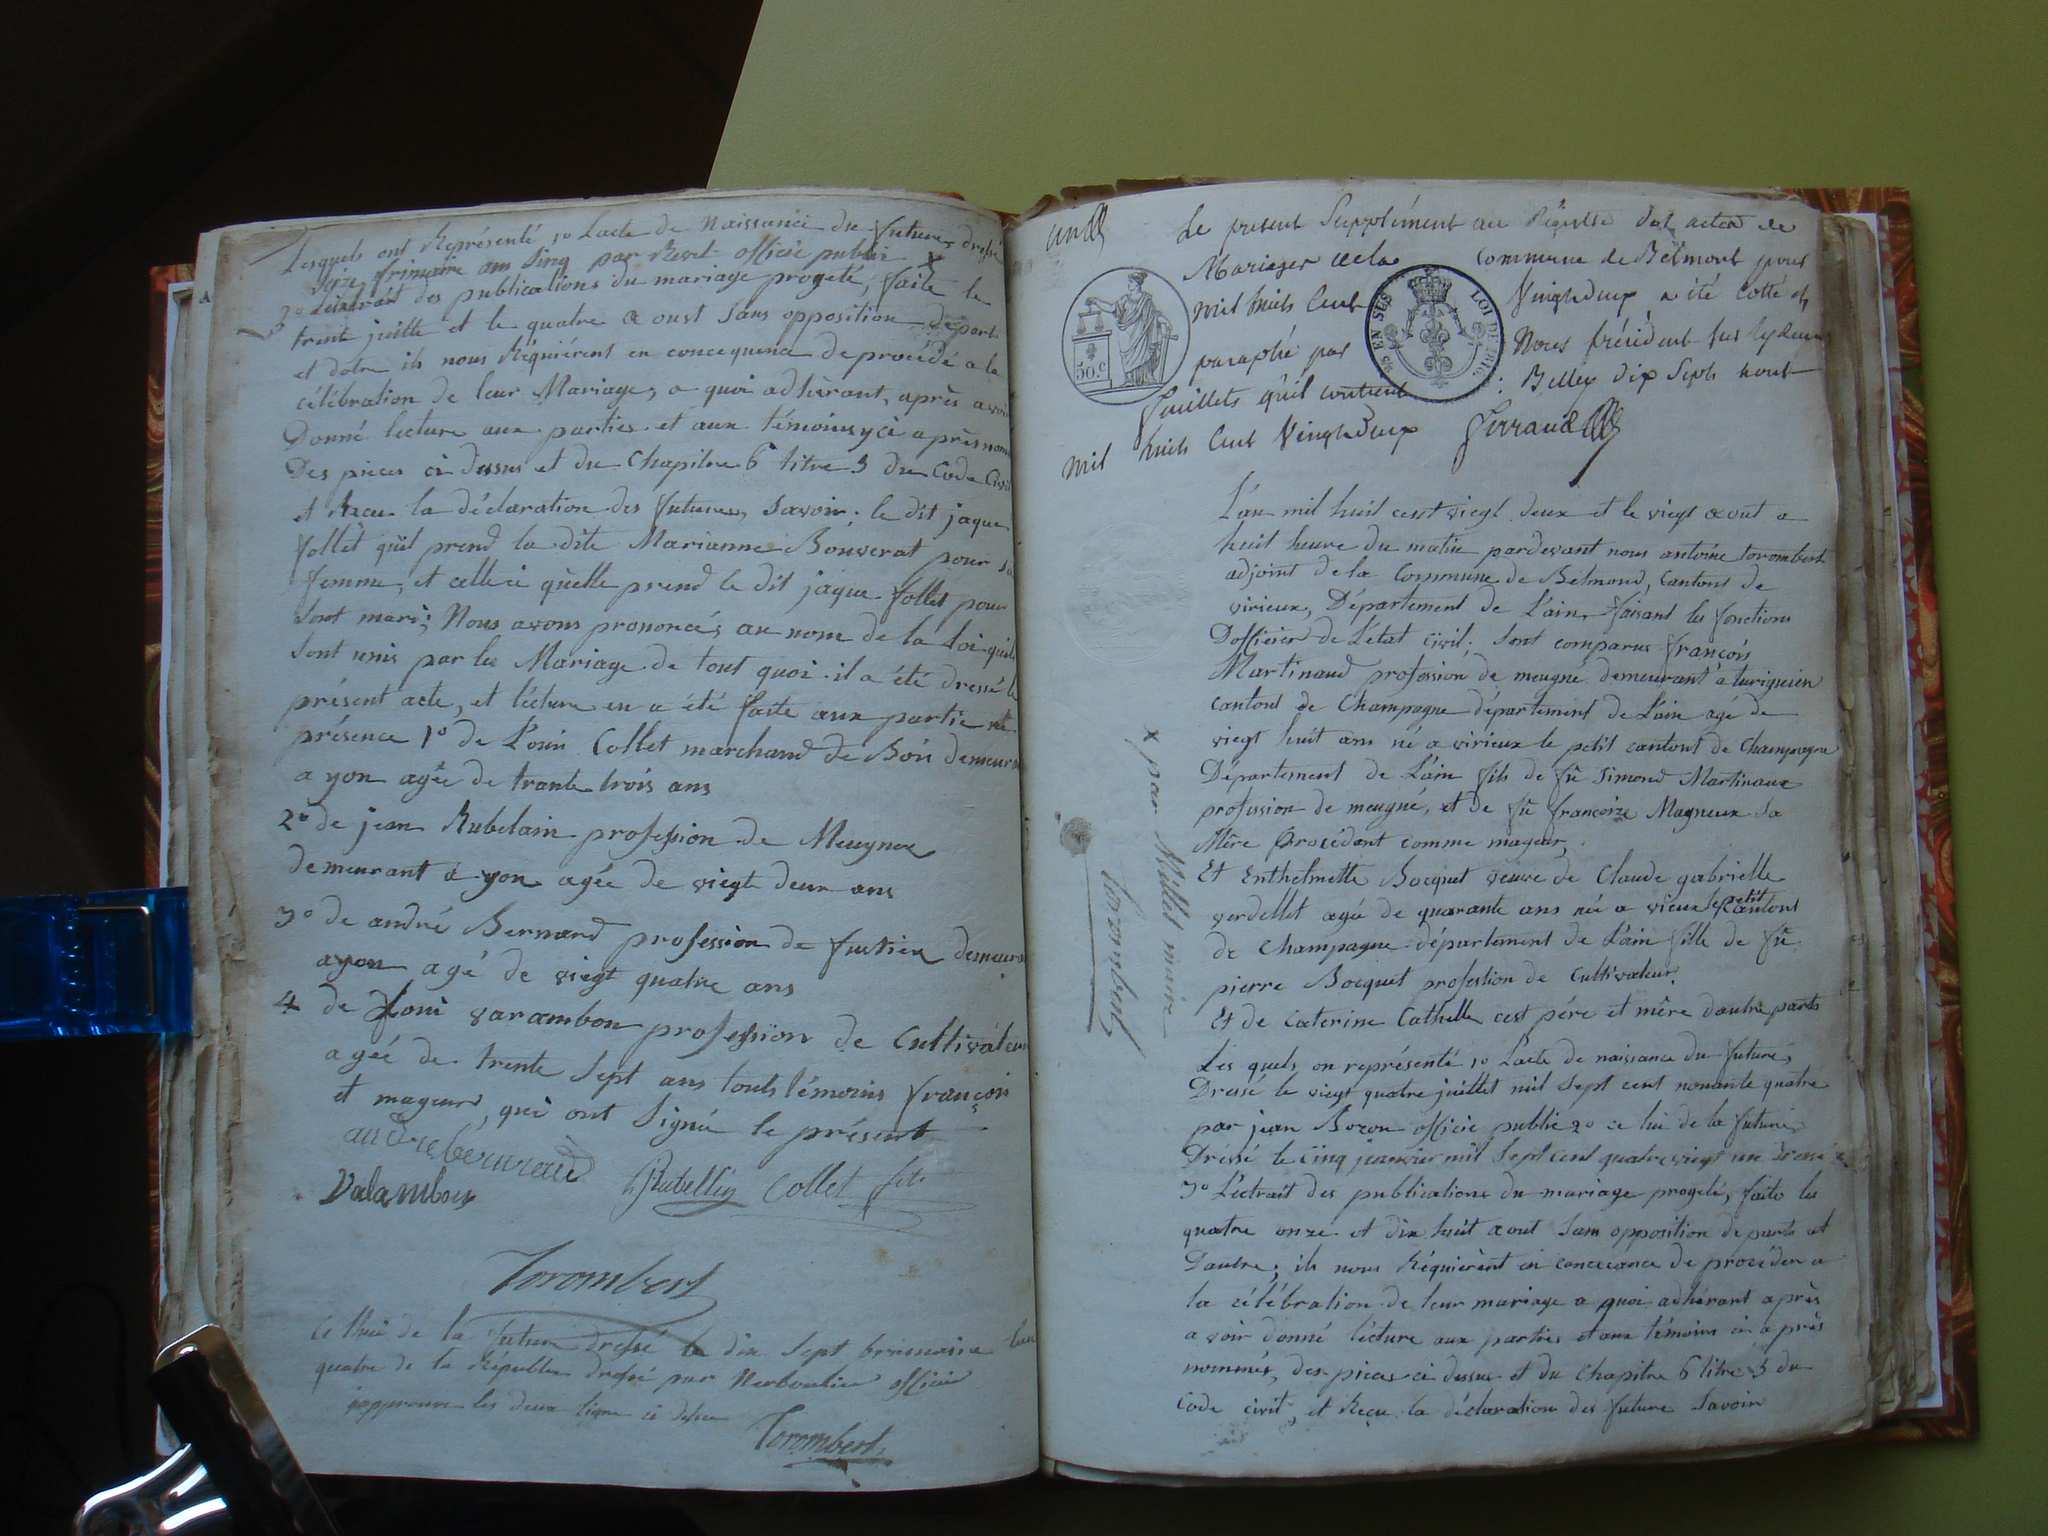 Lesquels ont Représenté 1º Lacte de Naissance du futures dressé
seize frimaire an Sinq par officié public x
3º Lextrait des publications du mariage progeté, faite le
trent juillet et le quatre aoust sans opposition depart
et dotre ils nous Réquiérent en concequence deprocédé a la
célébration de leur Mariage, a quoi adhérant, après avoir
Donné lecture aux parties et aux témoins yci après nom
Des pieces ci dessus et du Chapitre 6 titre 5 du Code Civil
et Recu la déclaration des futures, savoir: le dit jaque
follet qüil prend la dite Marianne Bonverat pour sa
femme, et celle ci qüelle prend le dit jaque follet pour
sont mari; Nous avons prononcés au nom de la loi quils
sont unis par les Mariage de tout quoi il a été dressé le
présent acte, et lécture en a été faite aux partie
présence 1º de Louis Collet marchand de Bois demeurant
a yon agée de trante trois ans
2º de jean Rubelain profession de Meugner
demeurant a yon agée de viegt deux ans
3º de andré Bernard profession de fustier demeurant
ayon agé de viegt quatre ans
4 de varambon profession de Cultivateur
agée de trente Sept ans touts témoins françois
et mageurs, qui ont Signé le présent
andrebernard
Valambon Rubellin Collet fils
Torombert
Ce lhui de la future dressé le dix sept brumaire lan
quatre de la Républice dressé par officié
japprouve les deux ligne ci dessu
Torombert
un
Le present Supplément au Régistre des actes de
Mariages de la commune de Bélmont pour
mil huit Cent Vingt deux a été cotté et
paraphé par Nous président les
50.c
EN SUS
LOI DE
feuillets qu'il contient Belley dix Sept aout
mil huit Cent Vingt deux Ferrand
L'an mil huit cent viegt deux et le viegt aout a
huit heure du matin pardevant nous antoine torombert
adjoint de la Commune de Bélmond, Cantont de
virieux, Département de L'ain, faisant les fonctions
Dofficier de L'état civil, sont comparus françois
Martinand profession de meugné demeurant a
cantont de Champagne département de L'ain agé de
viegt huit ans né a virieux le petit cantont de Champagne
Département de L'ain fils de fû Simond Martinand
profession de meugné, et de fû françoize Magneux sa
Mère Procédant comme mageur,
Et Enthelmette Bocquet veuve de Claude gabrielle
verdellet agée de quarante ans née a vieux le petit Cantont
de Champagne département de L'ain fille de fû
pierre Bocquet profestion de Cultivateur,
Et de Caterine Cathelle cest père et mère dautre parts
Les quels on représenté 1º Lacte de naissance du future,
Dressé le viegt quatre juillet mil sept cent nonante quatre
par jean Bozon officié public 2º ce lui de la future
Dréssé le cinq jeanvier mil Sept cent quatreviegt un
3º L'éctrait des publications du mariage progeté, faite les
quatre onze et dix huit aout sans opposition de parts et
Dautre; ils nous Réquièrent en de procéder a
la célébration de leur mariage a quoi adhérant après
avoir donné lécture aux parties et aux témoins ci après
nommés, des pieces ci dessus et du Chapitre 6 titre 5 du
Code civil, et Reçu la déclaration des future Savoir
x par Millet maire
torombert